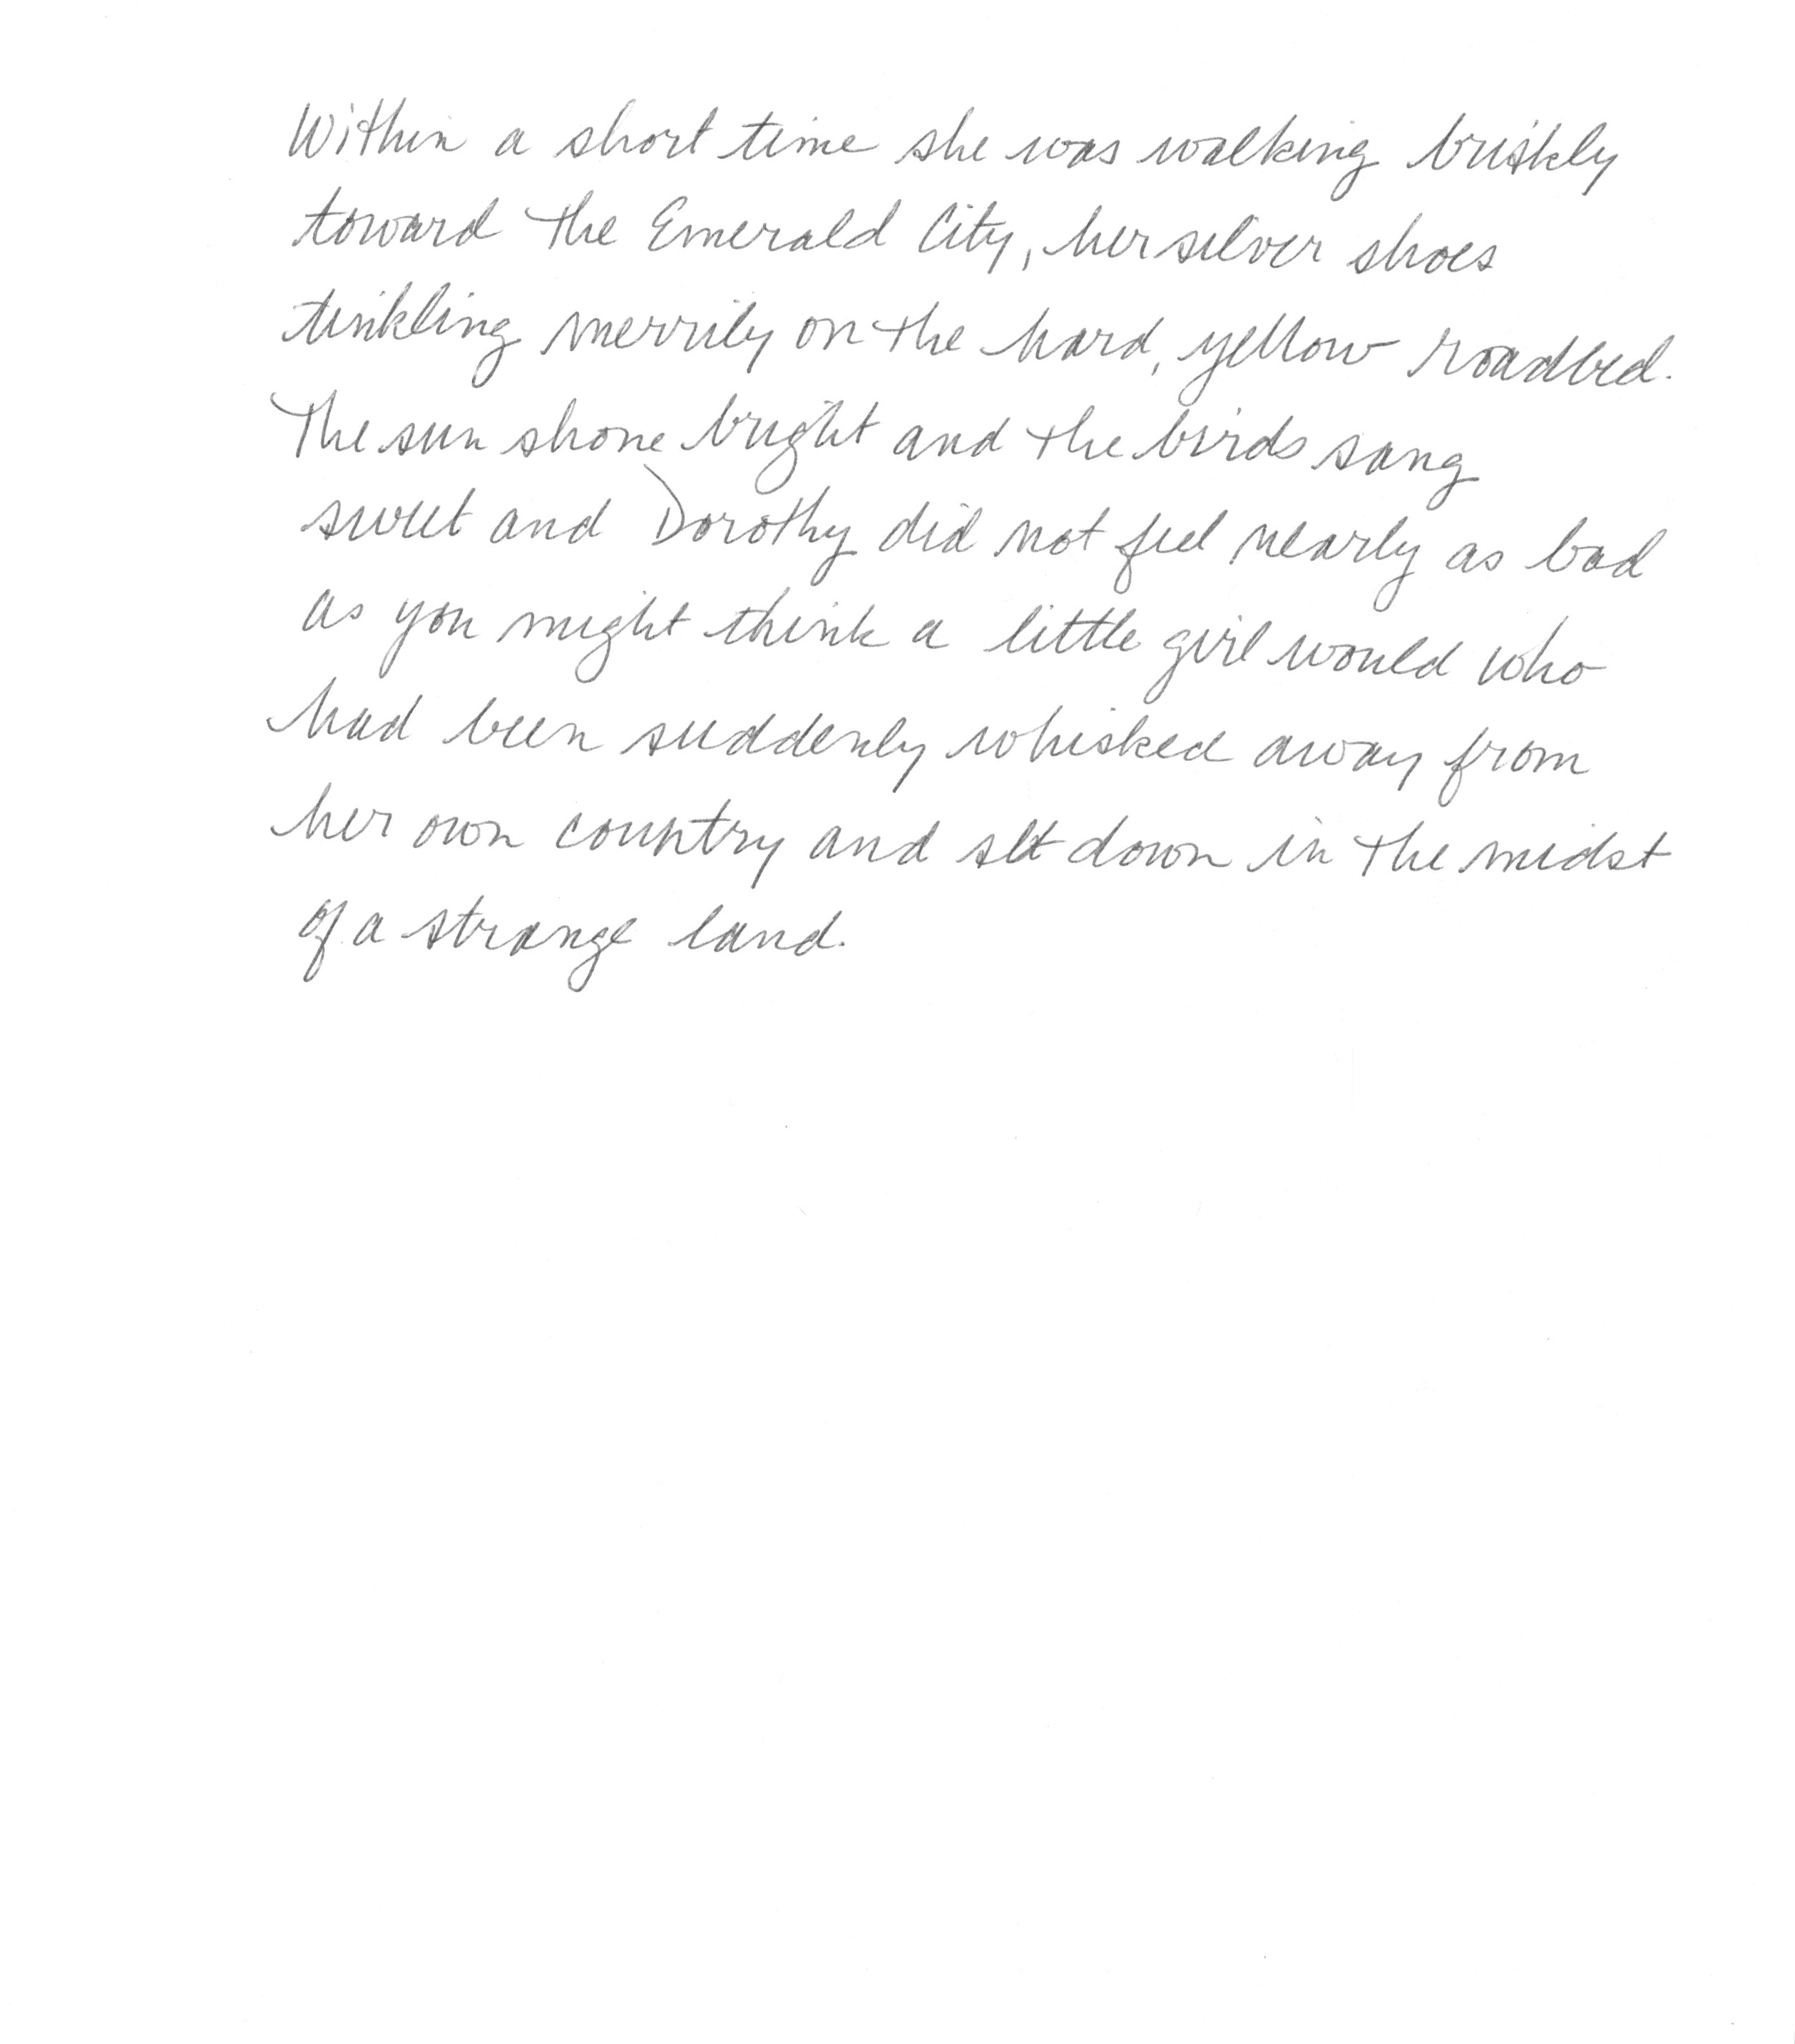 Within a short time she was walking briskly
toward the Emerald City, her silver shoes
tinkling merrily on the hard, yellow roadbed.
The sun shone bright and the birds sang
sweet and Dorothy did not feel nearly as bad
as you might think a little girl would who
had been suddenly whisked away from
her own country and set down in the midst
of a strange land.